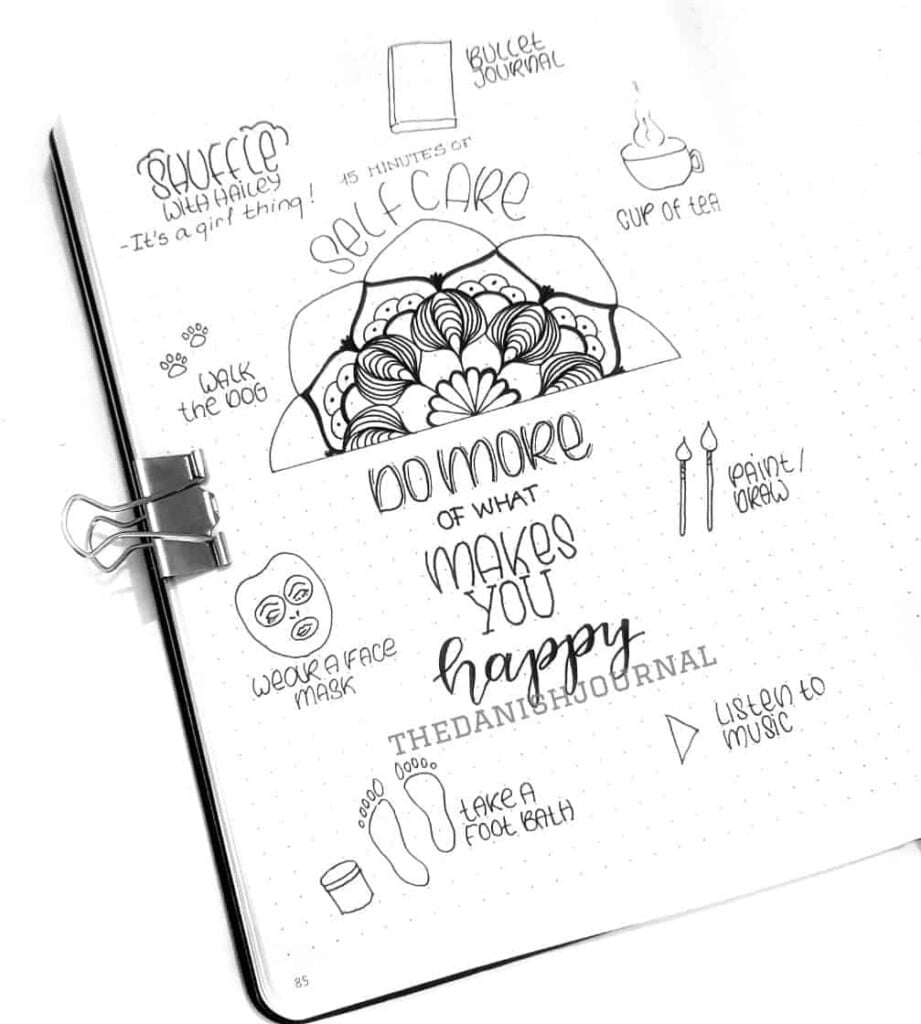 BULLET
JOURNAL
SHUFFLE
WITH HAILEY
-It's a girl thing!
15 MINUTES OF
SELF CARE
CUP OF TEA
WALK
the DOG
DO MORE
OF WHAT
MAKES
YOU
happy
PAINT/
DRAW
WEAR A FACE
MASK
THEDANISHJOURNAL
LISTEN TO
MUSIC
TAKE A
FOOT BATH
85